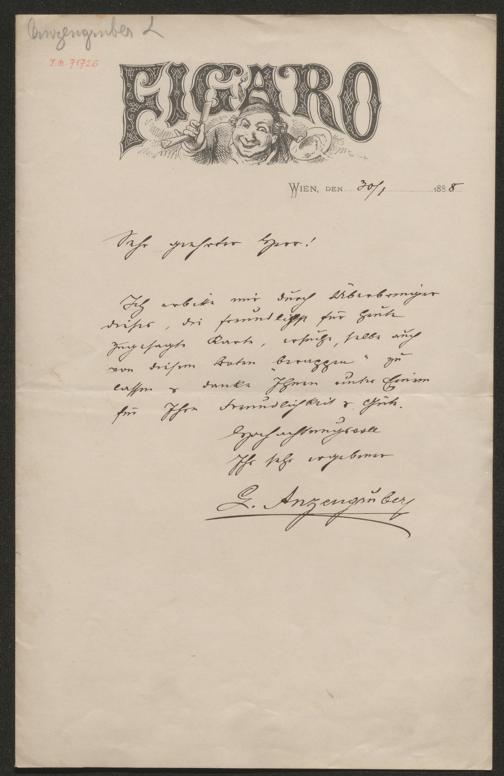 Anzengruber L
I.N. 71726
FIGARO
WIEN, DEN 30/1 1888
Sehr geehrter Herr!
Ich erbitte mir durch Überbringer
dieses, die freundlichst für heute
zugesagte Karte, ersuche, selbe auch
von diesem Boten "berappen" zu
lassen & danke Ihnen unter Einem
für Ihre Freundlichkeit & Güte.
Hochachtungsvoll
Ihr sehr ergebener
L. Anzengruber